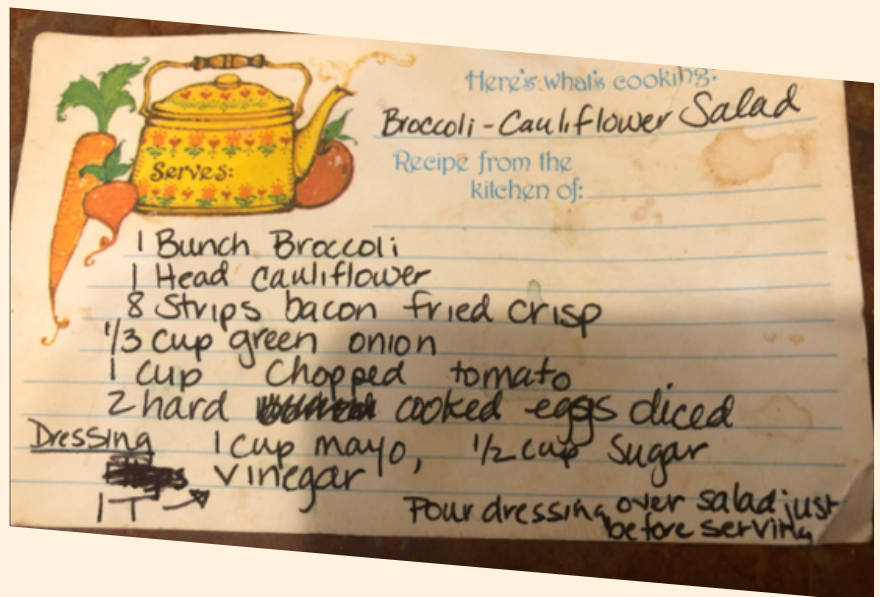 Here's what's cooking:
Broccoli-Cauliflower Salad
Serves:
Recipe from the
kitchen of:
1 Bunch Broccoli
1 Head cauliflower
8 Strips bacon fried crisp
1/3 cup green onion
1 cup Chopped tomato
2 hard cooked eggs diced
Dressing 1 cup mayo, 1/2 cup Sugar
1 T → vinegar
Pour dressing over salad just
before serving